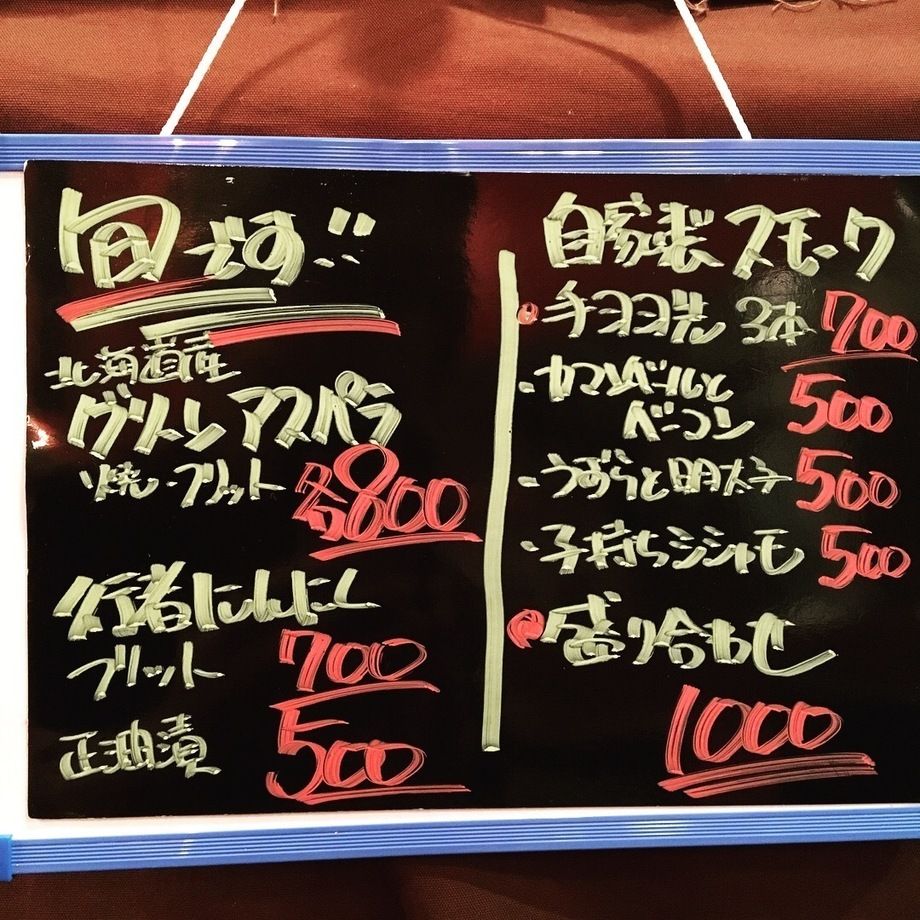 旬です!!
北海道産
グリーンアスパラ
焼・フリット 各800
行者にんにく
フリット 700
正油漬 500
自家製スモーク
チョコ光 3本 700
・カマンベールと
ベーコン 500
・うずらと明太子 500
・子持ちシシャモ 500
盛り合わせ
1000